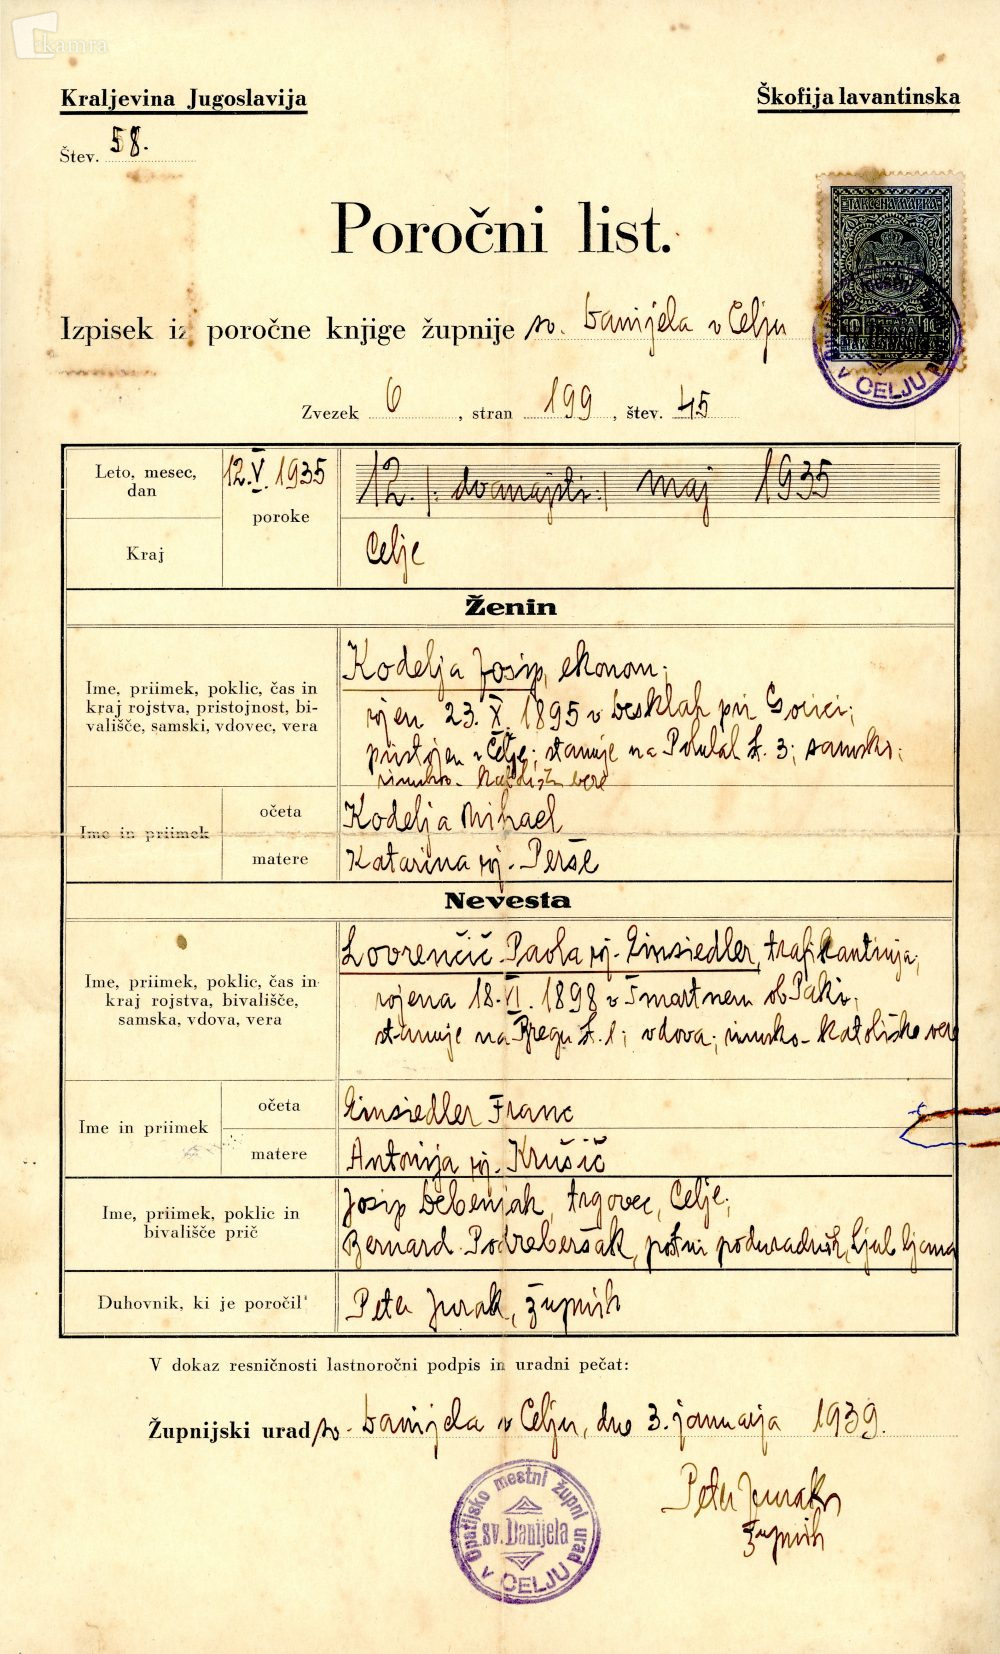 kamra
Kraljevina Jugoslavija
Škofija lavantinska
Štev. 58.
Poročni list.
ТАКСЕНА МАРКА
10 10
Izpisek iz poročne knjige župnije sv. Danijela v Celju
V CELJU
Zvezek 6, stran 199, štev. 45
Leto, mesec, dan
12. V. 1935
poroke
12. /: dvanajsti :/ maj 1935
Kraj
Celje
Ženin
Ime, priimek, poklic, čas in
kraj rojstva, pristojnost, bi-
vališče, samski, vdovec, vera
Kodelja Josip, ekonom;
rojen 23. X. 1895 v Desklah pri Gorici;
pristojen v Celje; stanuje na Polulah št. 3; samski;
rimsko-katoliške vere
Ime in priimek
očeta
Kodelja Mihael
matere
Katarina roj. Perše
Nevesta
Ime, priimek, poklic, čas in
kraj rojstva, bivališče,
samska, vdova, vera
Lovrenčič Paola roj. Einsiedler, trafikantinja,
rojena 18. VI. 1898 v Šmartnem ob Paki,
stanuje na Bregu št. 1; vdova; rimsko-katoliške vere
Ime in priimek
očeta
Einsiedler Franc
matere
Antonija roj. Krušič
Ime, priimek, poklic in
bivališče prič
Josip Debenjak, trgovec, Celje;
Bernard Podrebersak, poštni poduradnik, Ljubljana
Duhovnik, ki je poročil
Peter Jurak, župnik
V dokaz resničnosti lastnoročni podpis in uradni pečat:
Župnijski urad sv. Danijela v Celju, dne 3. januarja 1939.
Peter Jurak
župnik
Opatijsko mestni župni urad
sv. Danijela
V CELJU